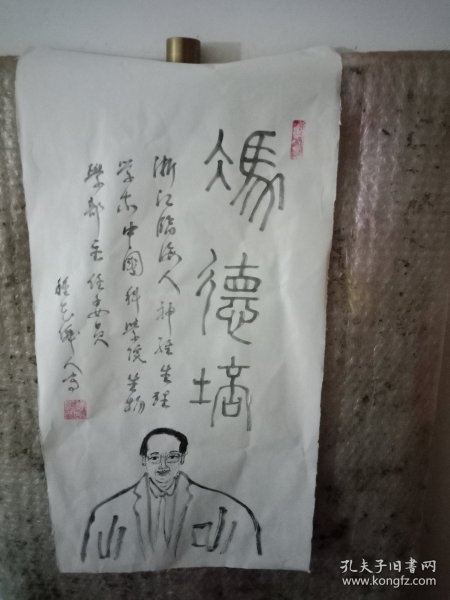 馮德培
浙江臨海人神經生理
学家中國科學院生物
學部主任委員
人写
孔夫子旧书网
www.kongfz.com